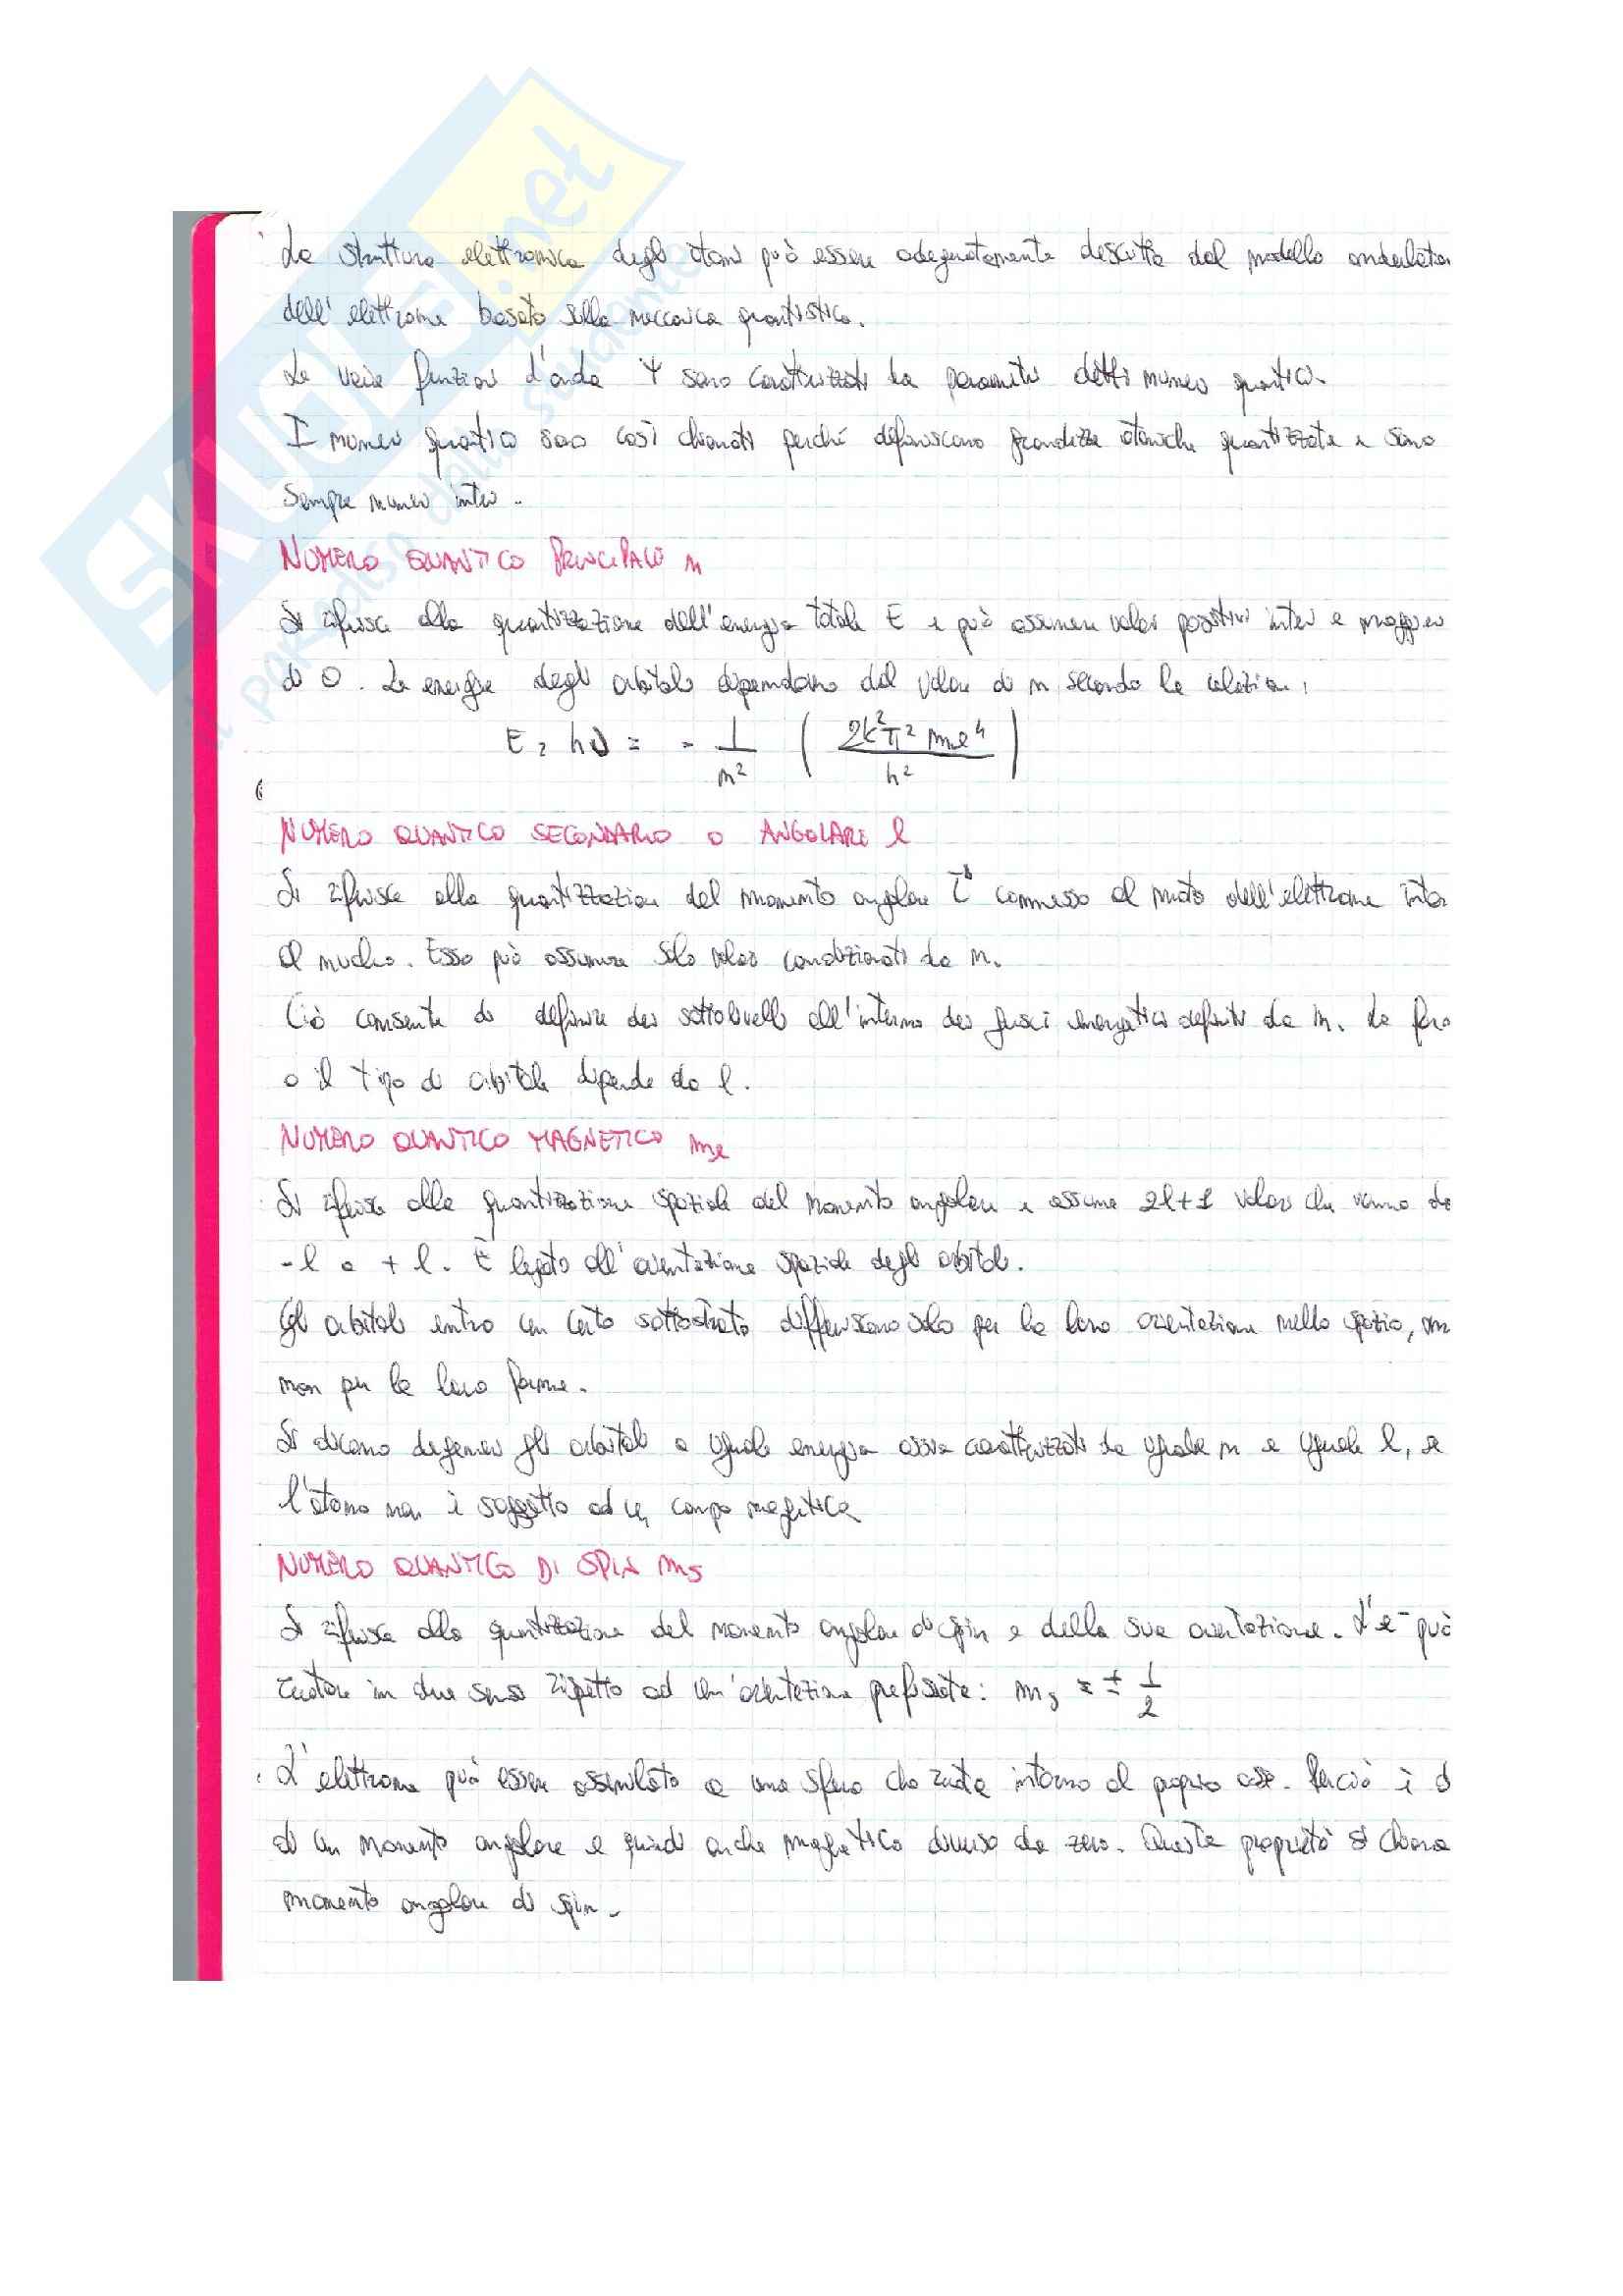 SKUOLA.net
il paradiso dello studente
La struttura elettronica degli atomi può essere adeguatamente descritta dal modello ondulator
dell'elettrone basato sulla meccanica quantistica.
Le varie funzioni d'onda Ψ sono caratterizzati da parametri detti numeri quantici.
I numeri quantici sono così chiamati perché definiscono grandezze atomiche quantizzate e sono
sempre numeri interi.
NUMERO QUANTICO PRINCIPALE n
Si riferisce alla quantizzazione dell'energia totale E e può assumere valori positivi interi e maggiori
di 0. Le energie degli orbitali dipendono dal valore di n secondo la relazione:
E = hν = - 1/n² (2k²π²me⁴/h²)
NUMERO QUANTICO SECONDARIO O ANGOLARE l
Si riferisce alla quantizzazione del momento angolare l connesso al moto dell'elettrone intor
al nucleo. Esso può assumere solo valori condizionati da n.
Ciò consente di definire dei sottolivelli all'interno dei gusci energetici definiti da n. La form
o il tipo di orbitale dipende da l.
NUMERO QUANTICO MAGNETICO ml
Si riferisce alla quantizzazione spaziale del momento angolare e assume 2l+1 valori che vanno da
-l a +l. È legato all'orientazione spaziale degli orbitali.
Gli orbitali entro un certo sottostrato differiscono solo per la loro orientazione nello spazio, ma
non per la loro forma.
Si dicono degeneri gli orbitali a uguale energia ossia caratterizzati da uguale n e uguale l, se
l'atomo non è soggetto ad un campo magnetico
NUMERO QUANTICO DI SPIN ms
Si riferisce alla quantizzazione del momento angolare di spin e della sua orientazione. L'e⁻ può
ruotare in due sensi rispetto ad un'orientazione prefissata: ms = ± 1/2
L'elettrone può essere assimilato a una sfera che ruota intorno al proprio asse. Perciò è d
di un momento angolare e quindi anche magnetico diverso da zero. Questa proprietà si chiama
momento angolare di spin.